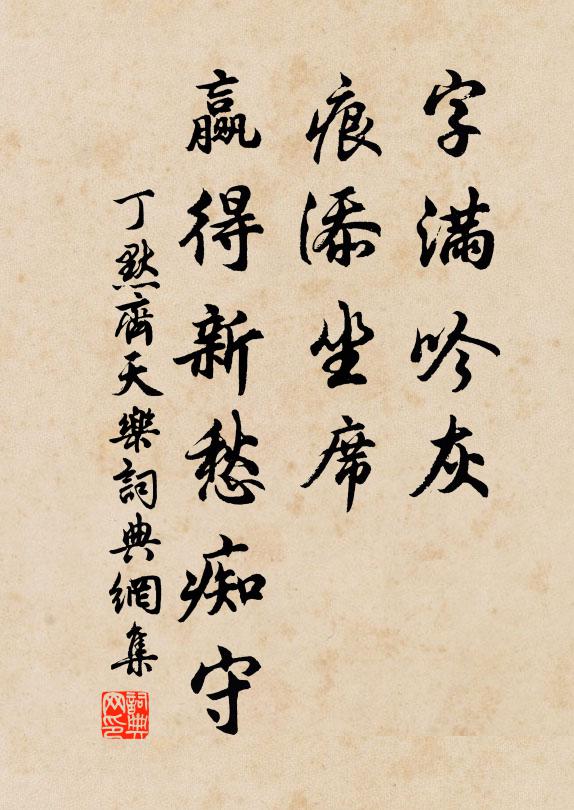 字滿吟灰
痕添坐席
贏得新愁痴守
丁默齊天樂詞典網集
詞典网印